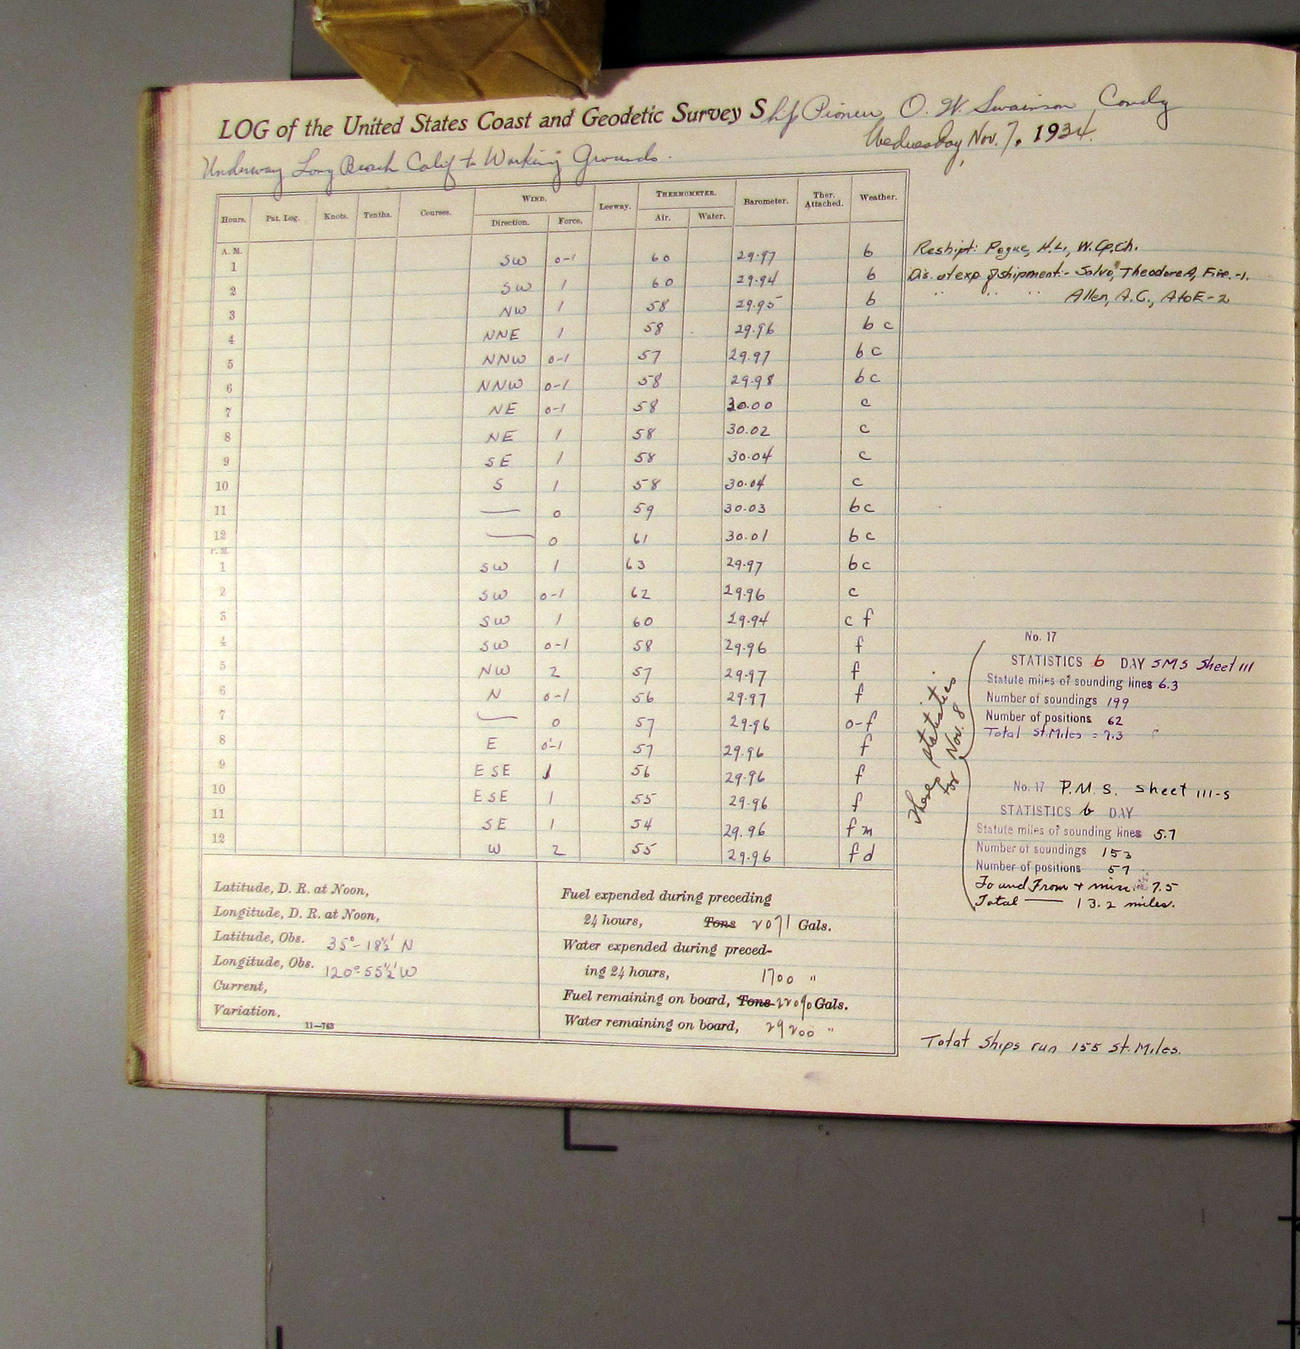 LOG of the United States Coast and Geodetic Survey Ship Pioneer, O. W. Swainson, Comdg
Wednesday, Nov. 7, 1934.
Underway Long Beach Calif to Working Grounds.
Hours. Pat. Log. Knots. Tenths. Courses. WIND. Leeway. THERMOMETER. Barometer. Ther. Attached. Weather.
Direction. Force. Air. Water.
A. M.
1 SW 0-1 60 29.97 b
2 SW 1 60 29.94 b
3 NW 1 58 29.95 b
4 NNE 1 58 29.96 b c
5 NNW 0-1 57 29.97 b c
6 NNW 0-1 58 29.98 b c
7 NE 0-1 58 30.00 c
8 NE 1 58 30.02 c
9 SE 1 58 30.04 c
10 S 1 58 30.04 c
11 — 0 59 30.03 b c
12 — 0 61 30.01 b c
P. M.
1 SW 1 63 29.97 b c
2 SW 0-1 62 29.96 c
3 SW 1 60 29.94 c f
4 SW 0-1 58 29.96 f
5 NW 2 57 29.97 f
6 N 0-1 56 29.97 f
7 — 0 57 29.96 o-f
8 E 0-1 57 29.96 f
9 ESE 1 56 29.96 f
10 ESE 1 55 29.96 f
11 SE 1 54 29.96 f m
12 W 2 55 29.96 f d
Latitude, D. R. at Noon,
Longitude, D. R. at Noon,
Latitude, Obs. 35°-18½' N
Longitude, Obs. 120°-55½' W
Current,
Variation,
11—763
Fuel expended during preceding
24 hours, Tons 2071 Gals.
Water expended during preced-
ing 24 hours, 1700 "
Fuel remaining on board, Tons Gals.
Water remaining on board, 29200 "
Reshipt: Pogue, H.L., W.Cp.Ch.
Dis. at exp. of shipment:- Salvo, Theodore A, Fire.-1.
" " " Allen, A.C., AtoE-2
These statistics
for Nov. 8
No. 17
STATISTICS b DAY SMS Sheet 111
Statute miles of sounding lines 6.3
Number of soundings 199
Number of positions 62
Total St. Miles = 7.3
No. 17 P.M.S. Sheet 111-S
STATISTICS b DAY
Statute miles of sounding lines 5.7
Number of soundings 153
Number of positions 57
To and From + misc = 7.5
Total — 13.2 miles.
Total Ships run 155 St. Miles.